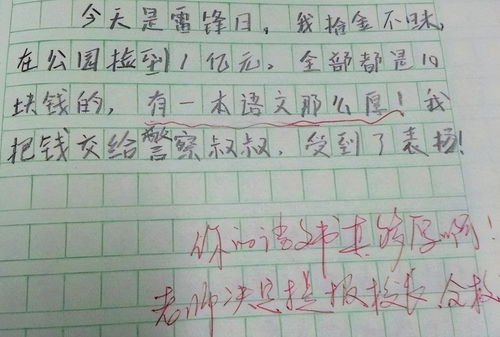 今天是雷锋日，我拾金不昧，
在公园捡到1亿元。全部都是10
块钱的，有一本语文那么厚！我
把钱交给警察叔叔，受到了表扬！
你的语文书真够厚啊！
老师决定提报校长，全校